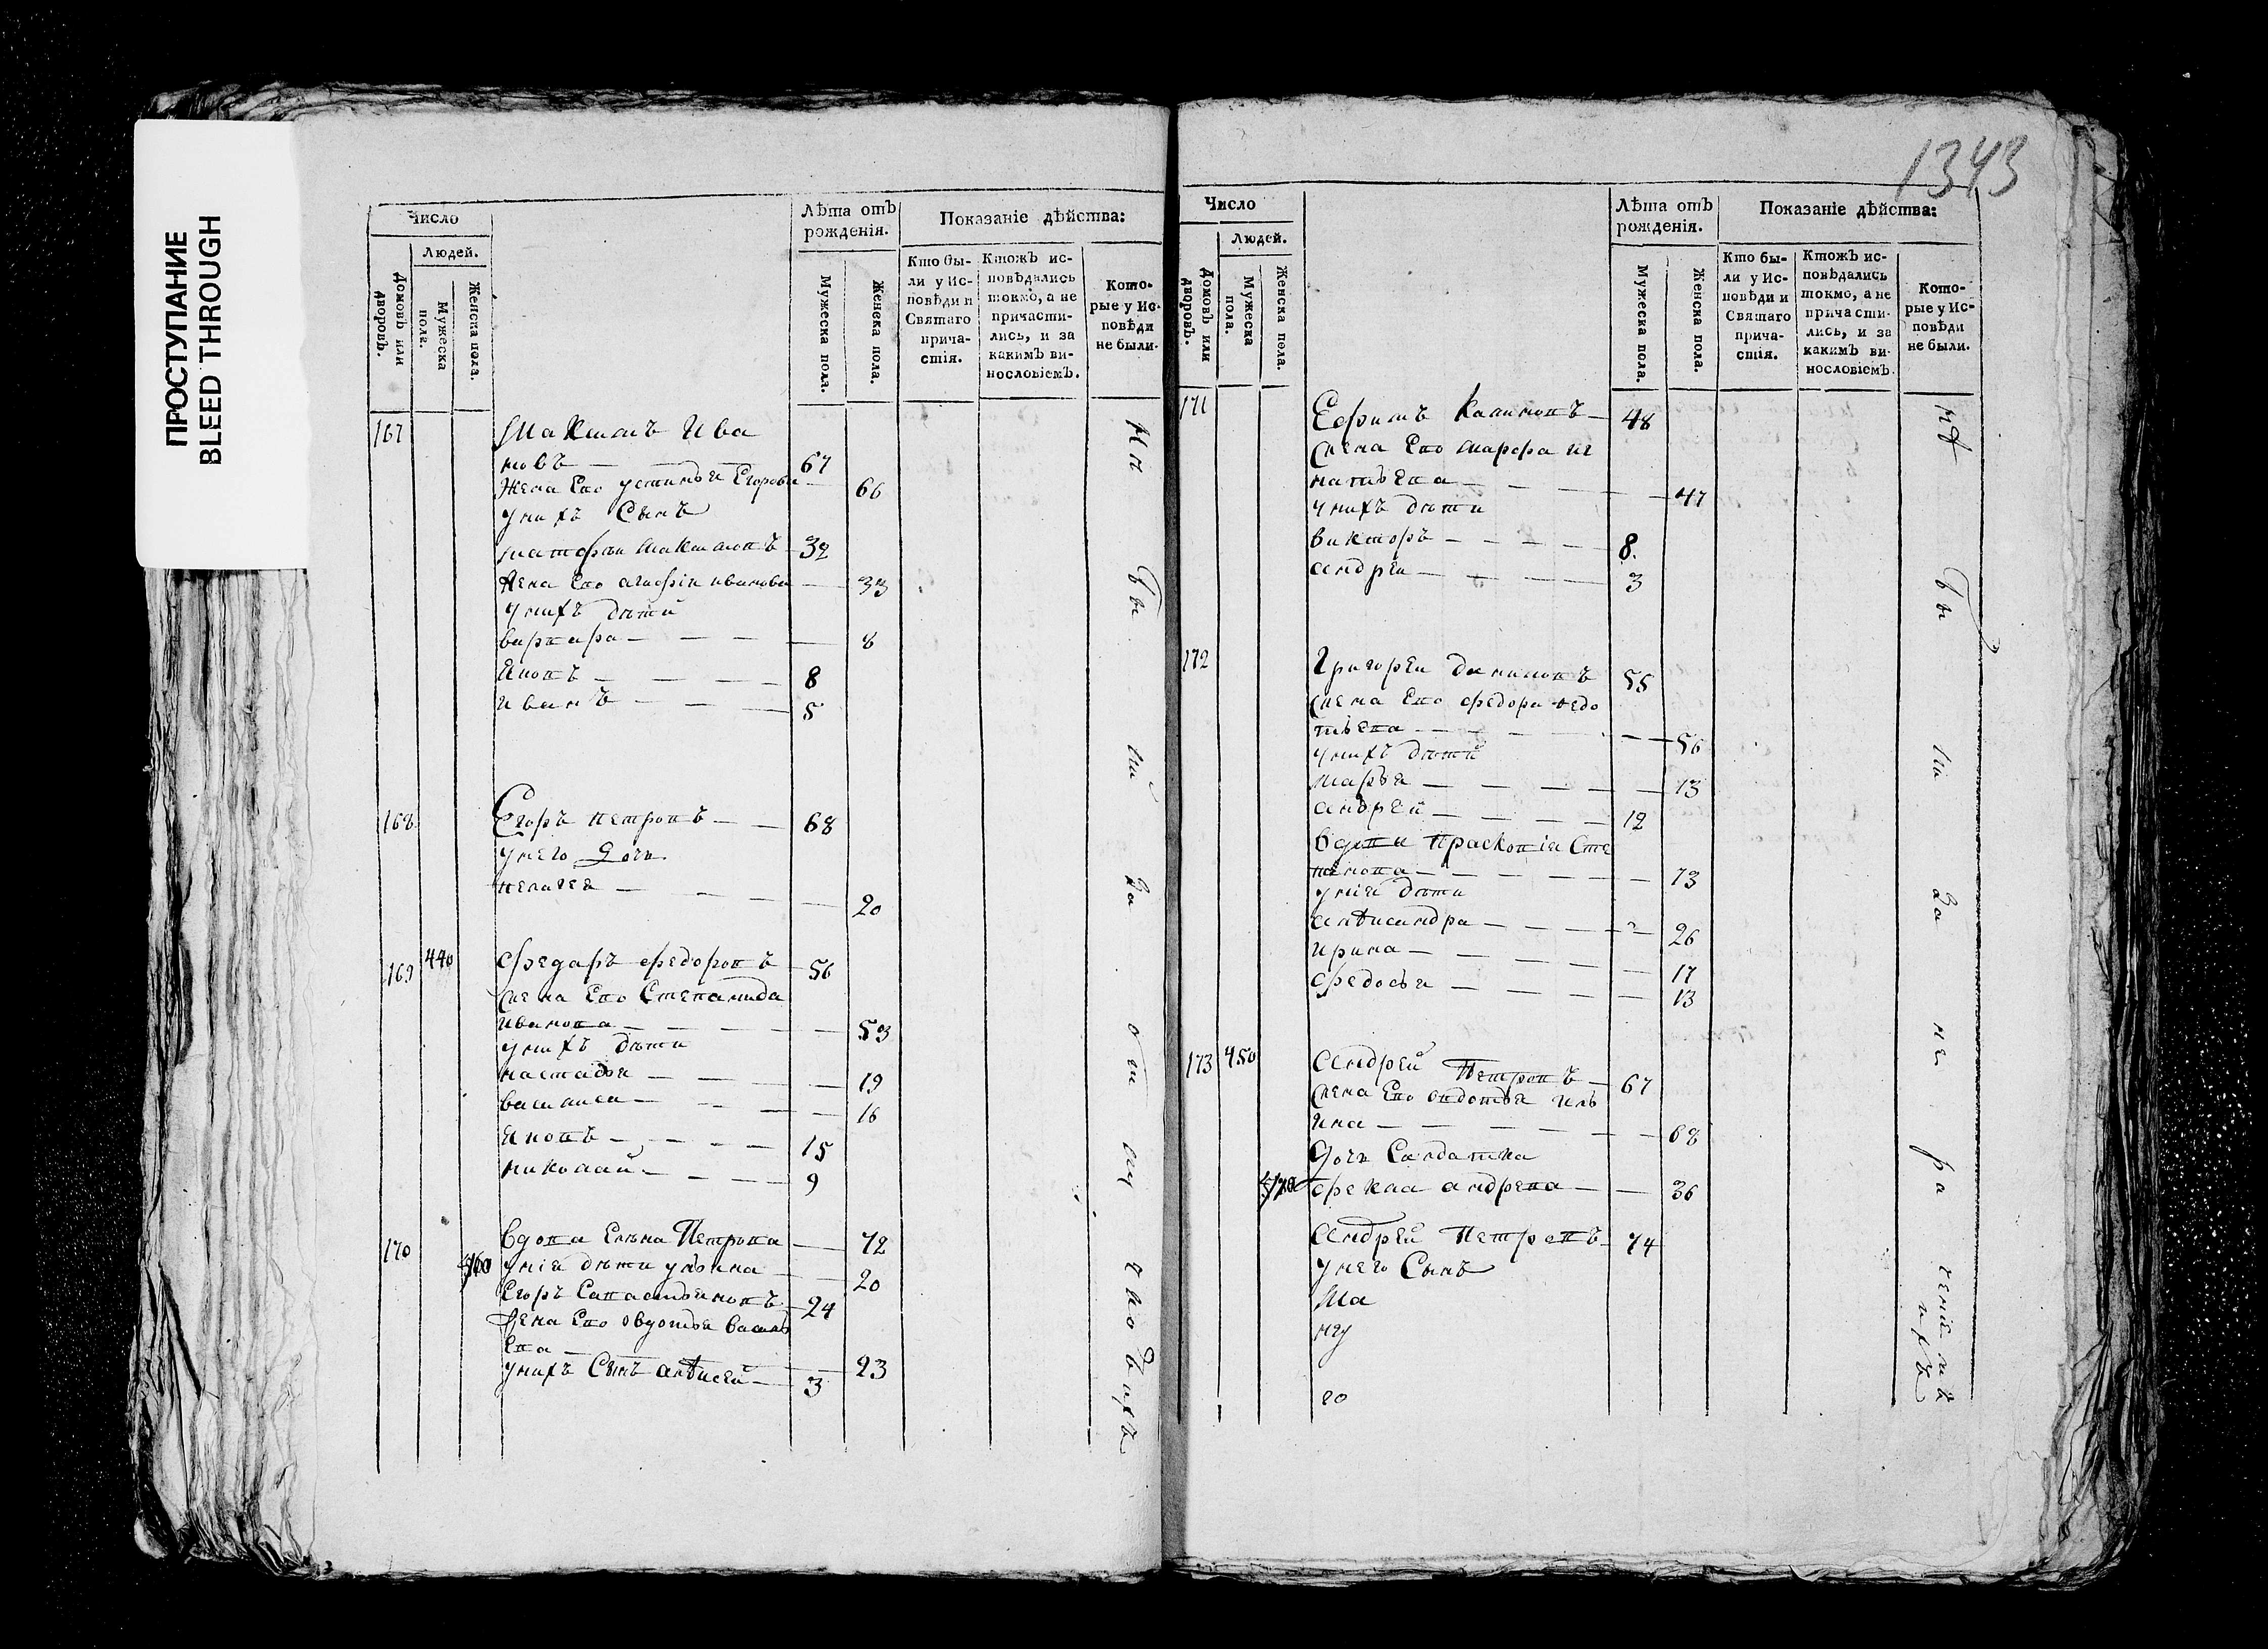 ПРОСТУПАНИЕ
BLEED THROUGH
1343
Число
Людей.
Домовъ или дворовъ.
Мужеска пола.
Женска пола.
Лѣта отъ рожденія.
Мужеска пола.
Женска пола.
Показаніе дѣйства:
Кто бы-
ли у Ис-
повѣди и
Святаго
прича-
стія.
Ктожъ ис-
повѣдались
токмо, а не
причасти-
лись, и за
какимъ ви-
нословіемъ.
Кото-
рые у Ис-
повѣди
не были.
167 Максимъ Ива
новъ 67
Жена Его устинья Егорова 66
у нихъ Сынъ
Максимовъ 32
Жена Его агафія иванова 33
у нихъ дѣти
варвара 8
Яковъ 8
иванъ 5
168 Егоръ петровъ 68
у него Дочь
пелагея 20
169 440 Федоръ федоровъ 56
жена Его Степанида
иванова 53
у нихъ дѣти
настасья 19
василиса 16
Яковъ 15
николай 9
170 Вдова Елена Петрова 72
у ней дѣти ульяна 20
Егоръ Савастьяновъ 24
Жена Его овдотья василь
ева 23
у нихъ Сынъ алѣксей 3
Число
Людей.
Домовъ или дворовъ.
Мужеска пола.
Женска пола.
Лѣта отъ рожденія.
Мужеска пола.
Женска пола.
Показаніе дѣйства:
Кто бы-
ли у Ис-
повѣди и
Святаго
прича-
стія.
Ктожъ ис-
повѣдались
токмо, а не
причасти-
лись, и за
какимъ ви-
нословіемъ.
Кото-
рые у Ис-
повѣди
не были.
171 Ефимъ 48
жена Его марфа иг
натьева 47
у нихъ дѣти
викторъ 8.
андрей 3
172 Григорей даниловъ 55
жена Его федора федо
тьева 56
у нихъ дѣти
марья 13
андрей 12
вдова Прасковія Сте
панова 73
у ней дѣти
алѣксандра 26
ирина 17
федосья 13
173 450 Андрей Петровъ 67
жена Его овдотья иль
ина 68
Дочь Салдатка
фекла андрева 36
Андрей Петровъ 74
у него Сынъ
Ма
го